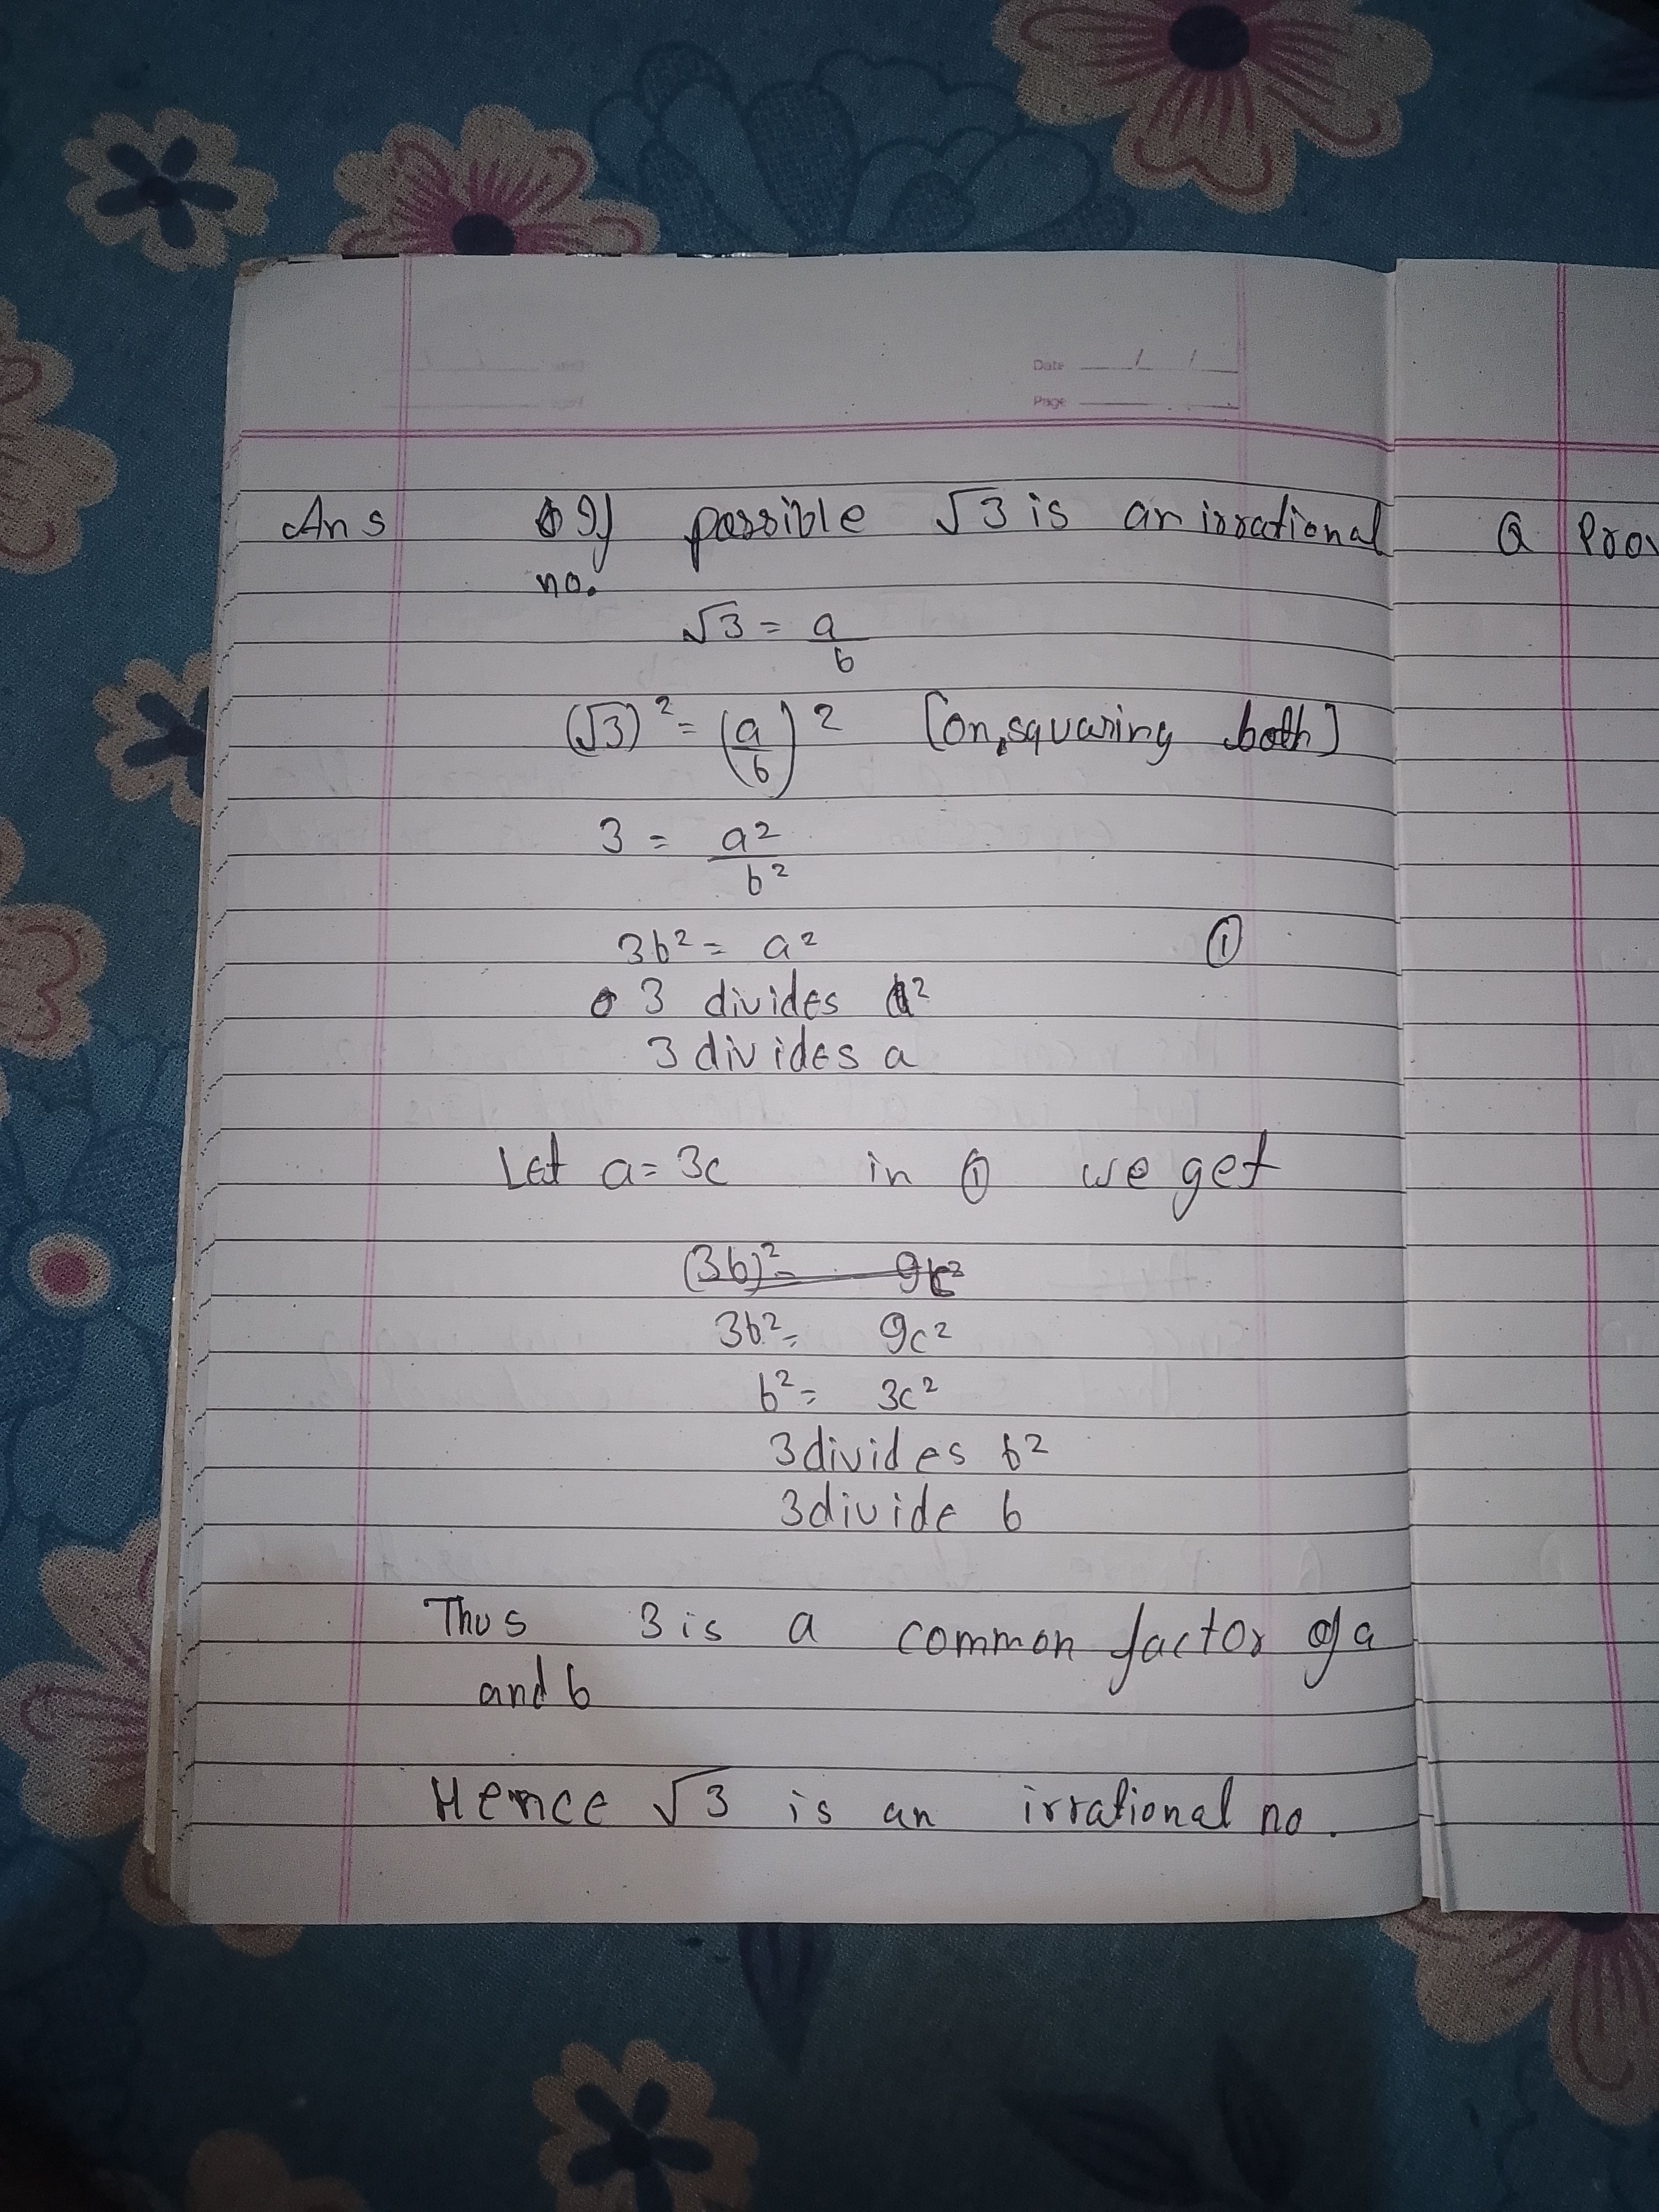 Date / /
Page
Ans If possible √3 is an irrational
no.
√3 = a/b
(√3)² = (a/b)² [on, squaring both]
3 = a²/b²
3b² = a² ①
3 divides a²
3 divides a
Let a = 3c in ① we get
(3b)² = 9c²
3b² = 9c²
b² = 3c²
3 divides b²
3 divide b
Thus 3 is a common factor of a
and b
Hence √3 is an irrational no.
Q Prov